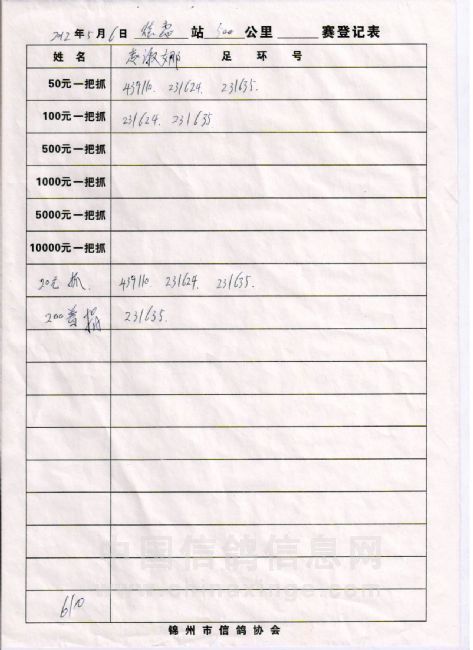 2012年5月6日 站 500公里 赛登记表
姓名 淑娜 足环号
50元一把抓 439110. 231624. 231635.
100元一把抓 231624. 231635
500元一把抓
1000元一把抓
5000元一把抓
10000元一把抓
20元抓. 439110. 231624. 231635.
200 231635.
610
中国信鸽信息网
www.chinaxinge.com
锦州市信鸽协会